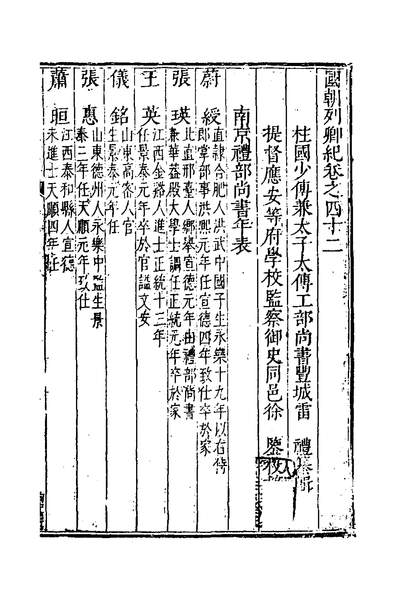 國朝列卿紀卷之四十二
柱國少傅兼太子太傅工部尚書豐城雷 禮
提督應安等府學校監察御史同邑徐 鑒
南京禮部尚書年表
蔚 綬 直隸合肥人洪武中國子生永樂十九年以右侍
郎掌部事洪熙元年任宣德四年致仕卒於家
張 瑛 北直邢臺人鄉舉宣德元年由禮部尚書
兼華蓋殿大學士調任正統元年卒於家
王 英 江西金谿人進士正統十三年
任景泰元年卒於官謚文安
儀 銘 山東高密人官
生景泰元年任
張 惠 山東德州人永樂中監生景
泰三年任天順元年致仕
蕭 晅 江西泰和縣人宣德
未進士天順四年任